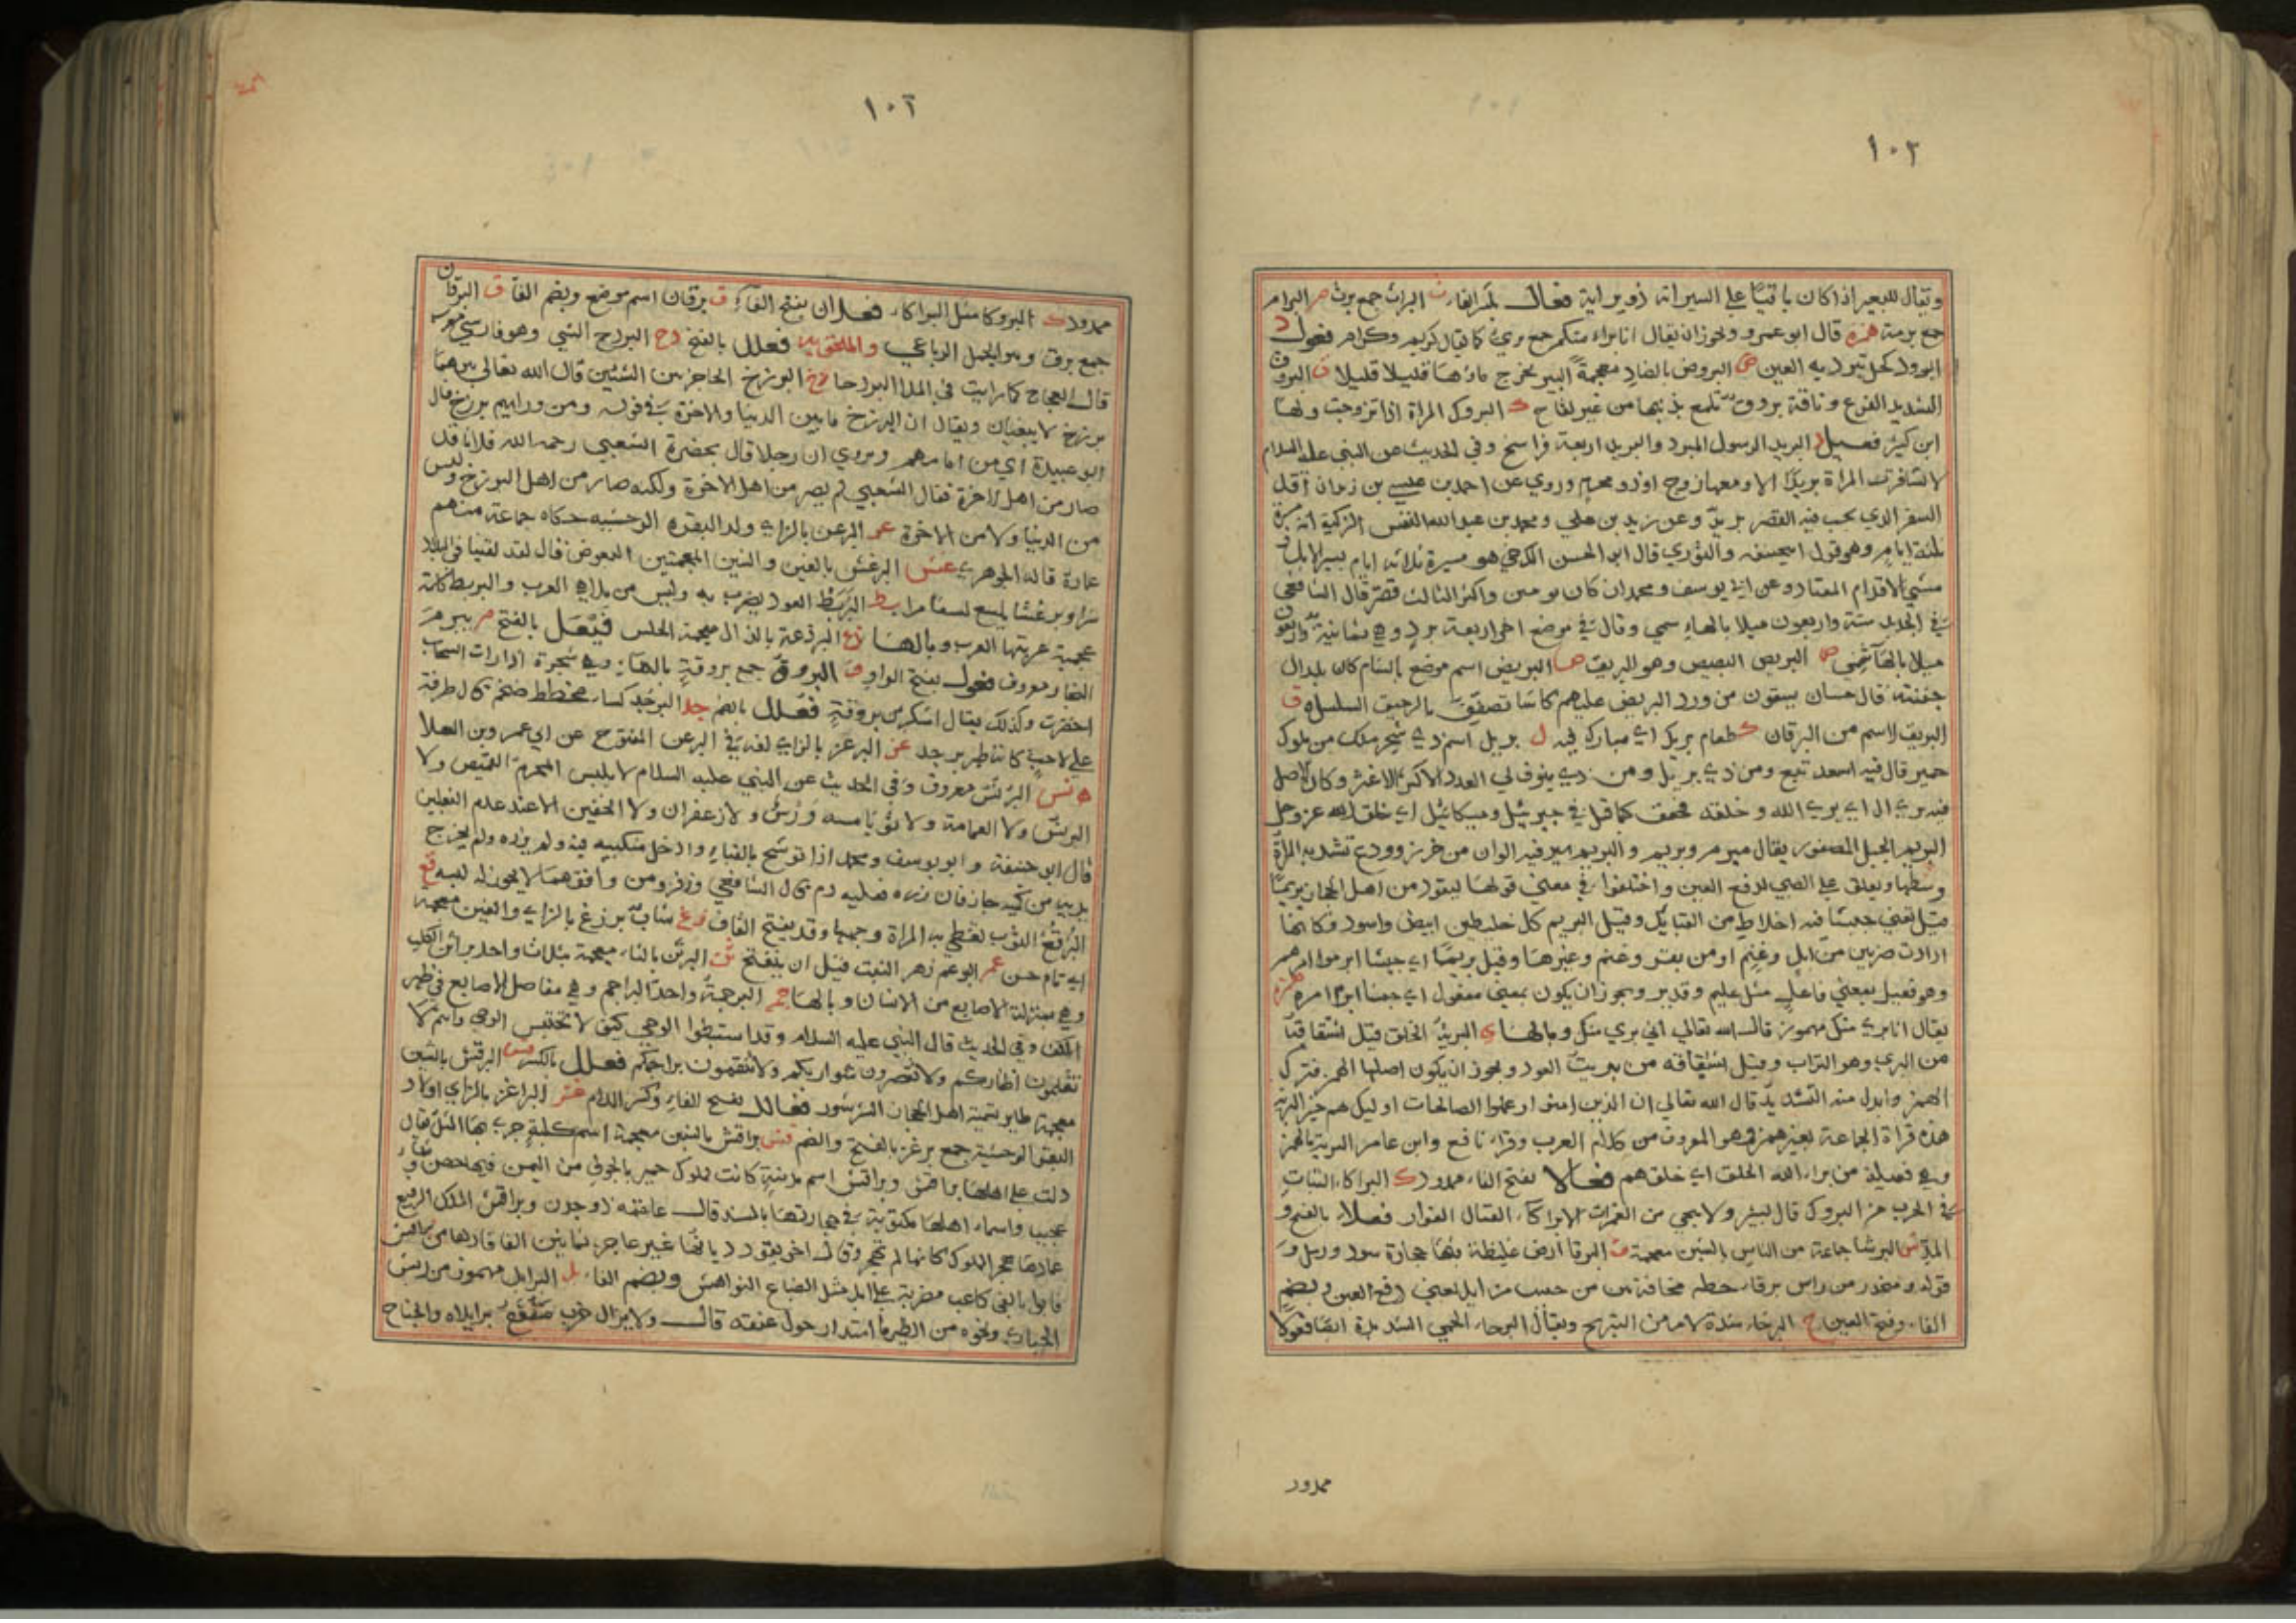 ١٠٢
ويقال للبعير اذا كان باقيًا على السير انه ذو براية فعال بكسر الفاء ث البراث جمع برث م البرام
جمع برمة همزة قال ابو عمرو ويجوز ان يقال انا براء منكم جمع بريء كما يقال كريم وكرام فعول د
البرود كحل تبرد به العين ض البروض بالضاد معجمة البير يخرج ماؤها قليلا قليلا ق البروق
الشديد الفزع وناقة بروق تلمع بذنبها من غير لقاح ك البروك المراة اذا تزوجت ولها
ابن كبير فعيل د البريد الرسول المبرد والبريد اربعة فراسخ وفي الحديث عن النبي عليه السلام
لا تسافرن المراة بريدًا الا ومعها زوج او ذو محرم وروي عن احمد بن عيسى بن زيد ان اقل
السفر الذي يجب فيه القصر بريد وعن زيد بن علي ومحمد بن عبد الله النفس الزكية انه مسيرة
ثلثة ايام وهو قول ابي حنيفة والثوري قال ابو الحسن الكرخي هو مسيرة ثلاثة ايام بسير الابل او
مشي الاقدام المعتاد وعن ابي يوسف ومحمد ان كان يومين واكثر الثالث قصر قال الشافعي
في الجديد ستة واربعون ميلا بالهاشمي وقال في موضع اخر اربعة برد وهي ثمانية واربعون
ميلا بالهاشمي ص البريص البصيص وهو البريق ض البريض اسم موضع بالشام كان لال
جفنة قال حسان يسقون من ورد البريض عليهم كاسًا تصفق بالرحيق السلسل ق
البريق الاسم من البرقان ك طعام بريك اي مبارك فيه ل بريل اسم ذي شحر ملك من ملوك
حمير قال فيه اسعد تبع ومن ذي بريل ومن ذي ينوف لي العدد الاكثر الاغثر وكان الاصل
فيه بري ال اي بري الله وخلقه فخفف كما قيل في جبريئيل وميكائيل اي خلق الله عز وجل
البريم الحبل المضفور يقال مبرم وبريم والبريم سير فيه الوان من خرز وودع تشد به المراة
وسطها ويعلق على الصبي لدفع العين واختلفوا في معنى قولها ليقود من اهل الحجاز بريمًا
قيل تعني جيشًا فيه اخلاط من القبائل وقيل البريم كل خليطين ابيض واسود وكانها
ارادت ضربين من ابل وغنم او من بقر وغنم وغيرها وقيل بريمًا اي جيشًا ابرموا امرهم
وهو فعيل بمعني فاعل مثل عليم وقدير ويجوز ان يكون بمعنى مفعول اي جيشا ابرم امره همزة
يقال انا بريء منك مهموز قال الله تعالي اني بري منك وبالهاء ي البرية الخلق قيل اشتقاقها
من البرى وهو التراب وقيل اشتقاقه من بريت العود ويجوز ان يكون اصلها الهمز فترك
الهمز وابدل منه التشديد قال الله تعالي ان الذين امنوا وعملوا الصالحات اوليك هم خير البرية
هذه قراة الجماعة بغير همز وهو المعروف من كلام العرب وقراء نافع وابن عامر البرية بالهمز
وهي فعيلة من براء الله الخلق اي خلقهم فعالا بفتح الفاء ممدود ك البراكاء الثبات
في الحرب من البروك قال بشر ولا ينجي من الغمرات الا براكاء القتال او الفرار فعلاء بالفتح و
المد ش البرشا جماعة من الناس بالشين معجمة ق البرقا ارض غليظة فيها حجارة سود ورمل و
قوله ومنحدر من راس برقاء حطه مخافة بين من حبيب مزايل يعني دمع العين وبضم
الفاء وفتح العين ح البرحاء شدة الامر من التبريح ويقال البرحاء الحمي الشديدة ايضا فعولا
ممدود
١٠٢
ممدود ك البروكا مثل البراكاء فعلان بفتح الفاء ق برقان اسم موضع وبضم الفاء ق البرقان
جمع برق وهو الحمل الرباعي والملحق به فعلل بالفتح دج البردج السبي وهو فارسي معرب
قال العجاج كما رايت في الملاء البردجا زخ البرزخ الحاجز بين الشئين قال الله تعالى بينهما
برزخ لا يبغيان ويقال ان البرزخ ما بين الدنيا والاخرة في قوله ومن ورايهم برزخ قال
ابو عبيدة اي من امامهم وروي ان رجلا قال بحضرة الشعبي رحمه الله فلان قد
صار من اهل الاخرة فقال الشعبي لم يصر من اهل الاخرة ولكنه صار من اهل البرزخ وليس
من الدنيا ولا من الاخرة غز البرغز بالزاي ولد البقرة الوحشية حكاه جماعة منهم
عادة قاله الجوهري غش البرغش بالغين والشين المعجمتين البعوض قال لقد لقينا في البلاد
شرا وبرغشا يلسع لسعا مرا بط البربط العود يضرب به وليس من ملاهي العرب والبربط كلمة
عجمية عربتها العرب وبالهاء ذع البرذعة بالذال معجمة الحلس فيعل بالفتح م بيرم
النجار معروف فعول بفتح الواو ق البروق جمع بروقة بالهاء وهي شجرة اذا رات السحاب
اخضرت وكذلك يقال اشكر من بروقة فعلل بالضم جد البرجد كساء مخطط ضخم قال طرفة
على لاحب كانه ظهر برجد غز البرغز بالزاي لغة في البرغز المفتوح عن ابي عمرو بن العلا
نس البرنس معروف وفي الحديث عن النبي عليه السلام لا يلبس المحرم القميص ولا
البرنس ولا العمامة ولا ثوبًا مسه ورس ولا زعفران ولا الخفين الا عند عدم النعلين
قال ابو حنيفة وابو يوسف ومحمد اذا توشح بالقباء وادخل منكبيه فيه ولم يزره ولم يخرج
يديه من كميه جاز فان زره فعليه دم قال الشافعي وزفر ومن وافقهما لا يجوز له لبسه قع
البرقع الثوب تغطي به المراة وجهها وقد يفتح القاف زغ شاب برزغ بالزاي والغين معجمة
اي تام حسن عم البرعم زهر النبت قيل ان يتفتح ثن البرثن بالثاء معجمة بثلاث واحد براثن الكلب
وهي بمنزلة الاصابع من الانسان وبالهاء جم البرجمة واحدة البراجم وهي مفاصل الاصابع في ظهر
الكف وفي الحديث قال النبي عليه السلام وقد استبطوا الوحي كيف لا يحتبس الوحي وانتم لا
تقلمون اظفاركم ولا تقصرون شواربكم ولا تنقون براجمكم فعلل بالكسر قش البرقش بالشين
معجمة طاير يسميه اهل الحجاز الشرشور فعالل بفتح الفاء وكسر اللام غز البراغز بالزاي اولاد
البقر الوحشية جمع برغز بالفتح والضم قش براقش بالشين معجمة اسم كلبة جرى بها المثل قال
دلت على اهلها براقش وبراقش اسم مدينة كانت لملوك حمير بالجوف من اليمن فيها حصن
عجيب واسماء اهلها مكتوبة في حجارتها بالمسند قال علقمة ذو جدن وبراقش الملك الرفيع
عمادها هجر الملوك كانها لم تهجر
الحبارى ونحوه من الطير ما استدار حول عنقه قال ولا يزال خرب مقنع برايلاه والجناح